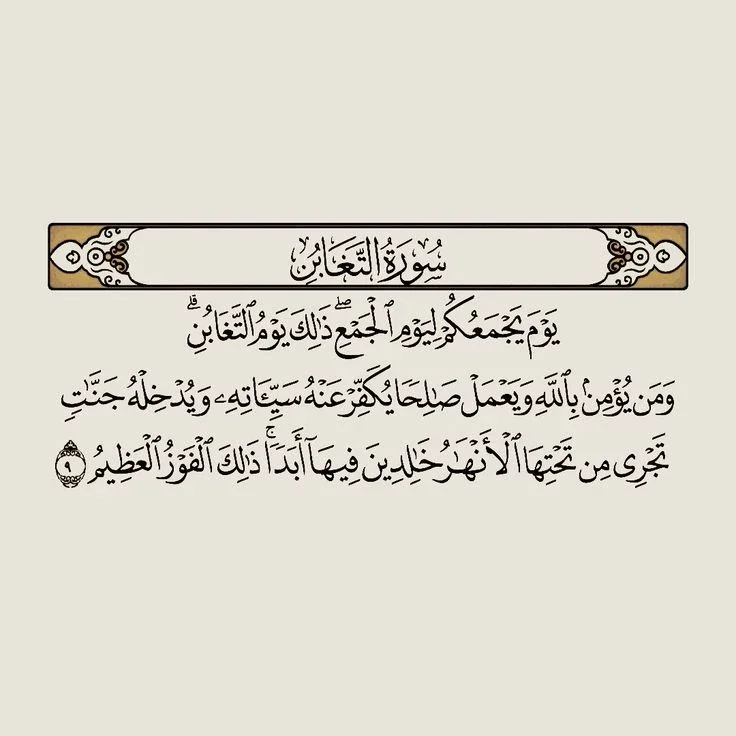 سُورَةُ التَّغَابُنِ
يَوْمَ يَجْمَعُكُمْ لِيَوْمِ ٱلْجَمْعِ ۖ ذَٰلِكَ يَوْمُ ٱلتَّغَابُنِ ۗ
وَمَن يُؤْمِنۢ بِٱللَّهِ وَيَعْمَلْ صَـٰلِحًا يُكَفِّرْ عَنْهُ سَيِّـَٔاتِهِۦ وَيُدْخِلْهُ جَنَّـٰتٍ
تَجْرِى مِن تَحْتِهَا ٱلْأَنْهَـٰرُ خَـٰلِدِينَ فِيهَآ أَبَدًا ۚ ذَٰلِكَ ٱلْفَوْزُ ٱلْعَظِيمُ ٩